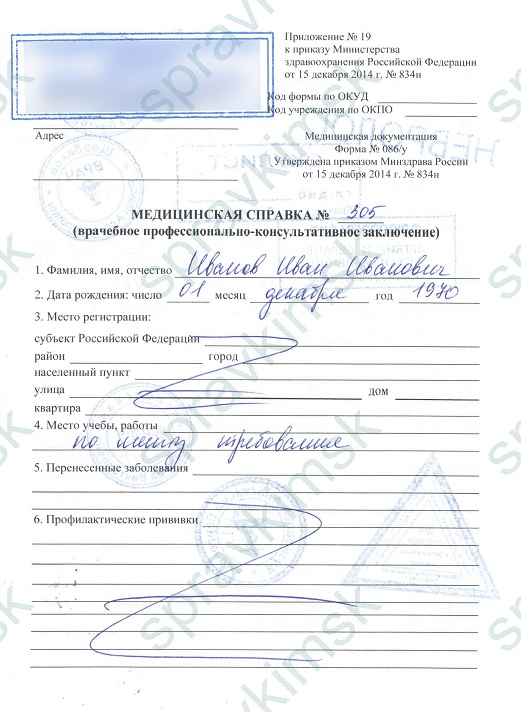 Приложение № 19
к приказу Министерства
здравоохранения Российской Федерации
от 15 декабря 2014 г. № 834н
Код формы по ОКУД
Код учреждения по ОКПО
Адрес
Медицинская документация
Форма № 086/у
Утверждена приказом Минздрава России
от 15 декабря 2014 г. № 834н
МЕДИЦИНСКАЯ СПРАВКА № 305
(врачебное профессионально-консультативное заключение)
1. Фамилия, имя, отчество Иванов Иван Иванович
2. Дата рождения: число 01 месяц декабря год 1970
3. Место регистрации:
субъект Российской Федерации
район город
населенный пункт
улица дом
квартира
4. Место учебы, работы
по месту требования
5. Перенесенные заболевания
6. Профилактические прививки
spravkimsk